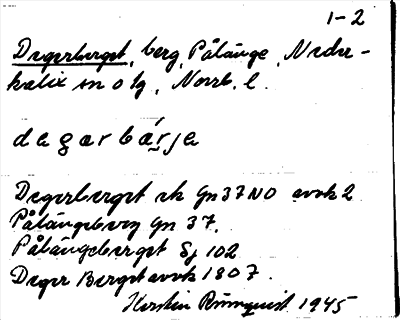 1-2
Degerberget, berg, Pålänge, Neder-
kalix sn o tg, Norrb. l.
degarbärje
Degerberget ek Gn37NO avvk 2
Pålängeberg Gn 37.
Pålängeberget Sj 102
Deger Berget avvk 1807.
Kersten Rönnquist 1945